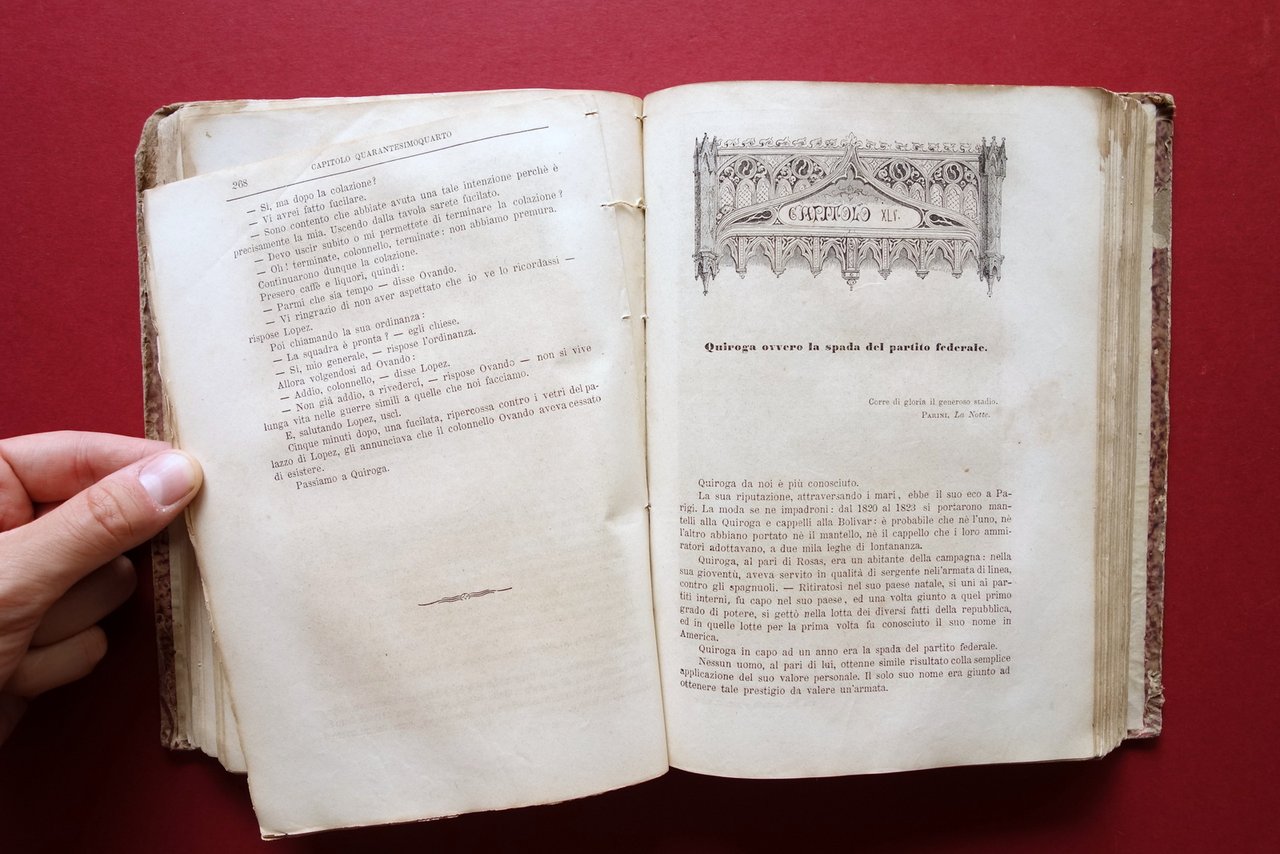 268
CAPITOLO QUARANTESIMOQUARTO
— Si, ma dopo la colazione?
— Vi avrei fatto fucilare.
— Sono contento che abbiate avuta una tale intenzione perchè è
precisamente la mia. Uscendo dalla tavola sarete fucilato.
— Devo uscir subito o mi permettete di terminare la colazione?
— Oh! terminate, colonnello, terminate: non abbiamo premura.
Continuarono dunque la colazione.
Presero caffè e liquori, quindi:
— Parmi che sia tempo — disse Ovando.
— Vi ringrazio di non aver aspettato che io ve lo ricordassi —
rispose Lopez.
Poi chiamando la sua ordinanza:
— La squadra è pronta? — egli chiese.
— Si, mio generale, — rispose l'ordinanza.
Allora volgendosi ad Ovando:
— Addio, colonnello, — disse Lopez.
— Non già addio, a rivederci, — rispose Ovando — non si vive
lunga vita nelle guerre simili a quelle che noi facciamo.
E, salutando Lopez, uscì.
Cinque minuti dopo, una fucilata, ripercossa contro i vetri del pa-
lazzo di Lopez, gli annunciava che il colonnello Ovando aveva cessato
di esistere.
Passiamo a Quiroga.
CAPITOLO XLV.
Quiroga ovvero la spada del partito federale.
Corre di gloria il generoso stadio.
PARINI, La Notte.
Quiroga da noi è più conosciuto.
La sua riputazione, attraversando i mari, ebbe il suo eco a Pa-
rigi. La moda se ne impadronì: dal 1820 al 1823 si portarono man-
telli alla Quiroga e cappelli alla Bolivar: è probabile che nè l'uno, nè
l'altro abbiano portato nè il mantello, nè il cappello che i loro ammi-
ratori adottavano, a due mila leghe di lontananza.
Quiroga, al pari di Rosas, era un abitante della campagna: nella
sua gioventù, aveva servito in qualità di sergente nell'armata di linea,
contro gli spagnuoli. — Ritiratosi nel suo paese natale, si unì ai par-
titi interni, fu capo nel suo paese, ed una volta giunto a quel primo
grado di potere, si gettò nella lotta dei diversi fatti della repubblica,
ed in quelle lotte per la prima volta fu conosciuto il suo nome in
America.
Quiroga in capo ad un anno era la spada del partito federale.
Nessun uomo, al pari di lui, ottenne simile risultato colla semplice
applicazione del suo valore personale. Il solo suo nome era giunto ad
ottenere tale prestigio da valere un'armata.